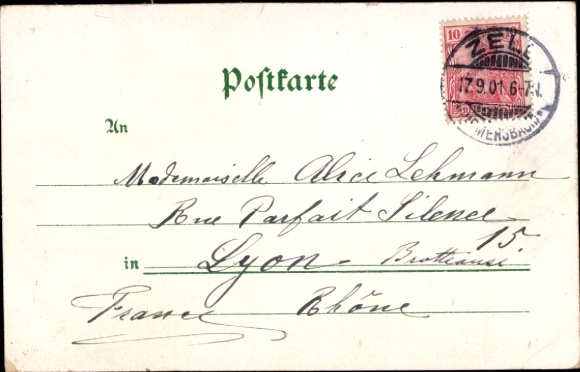 10
ZELL
17.9.01 6-7N.
Postkarte
An
Mademoiselle Alice Lehmann
Rue Parfait Silence
15.
in Lyon - Brotteaux
France Rhône